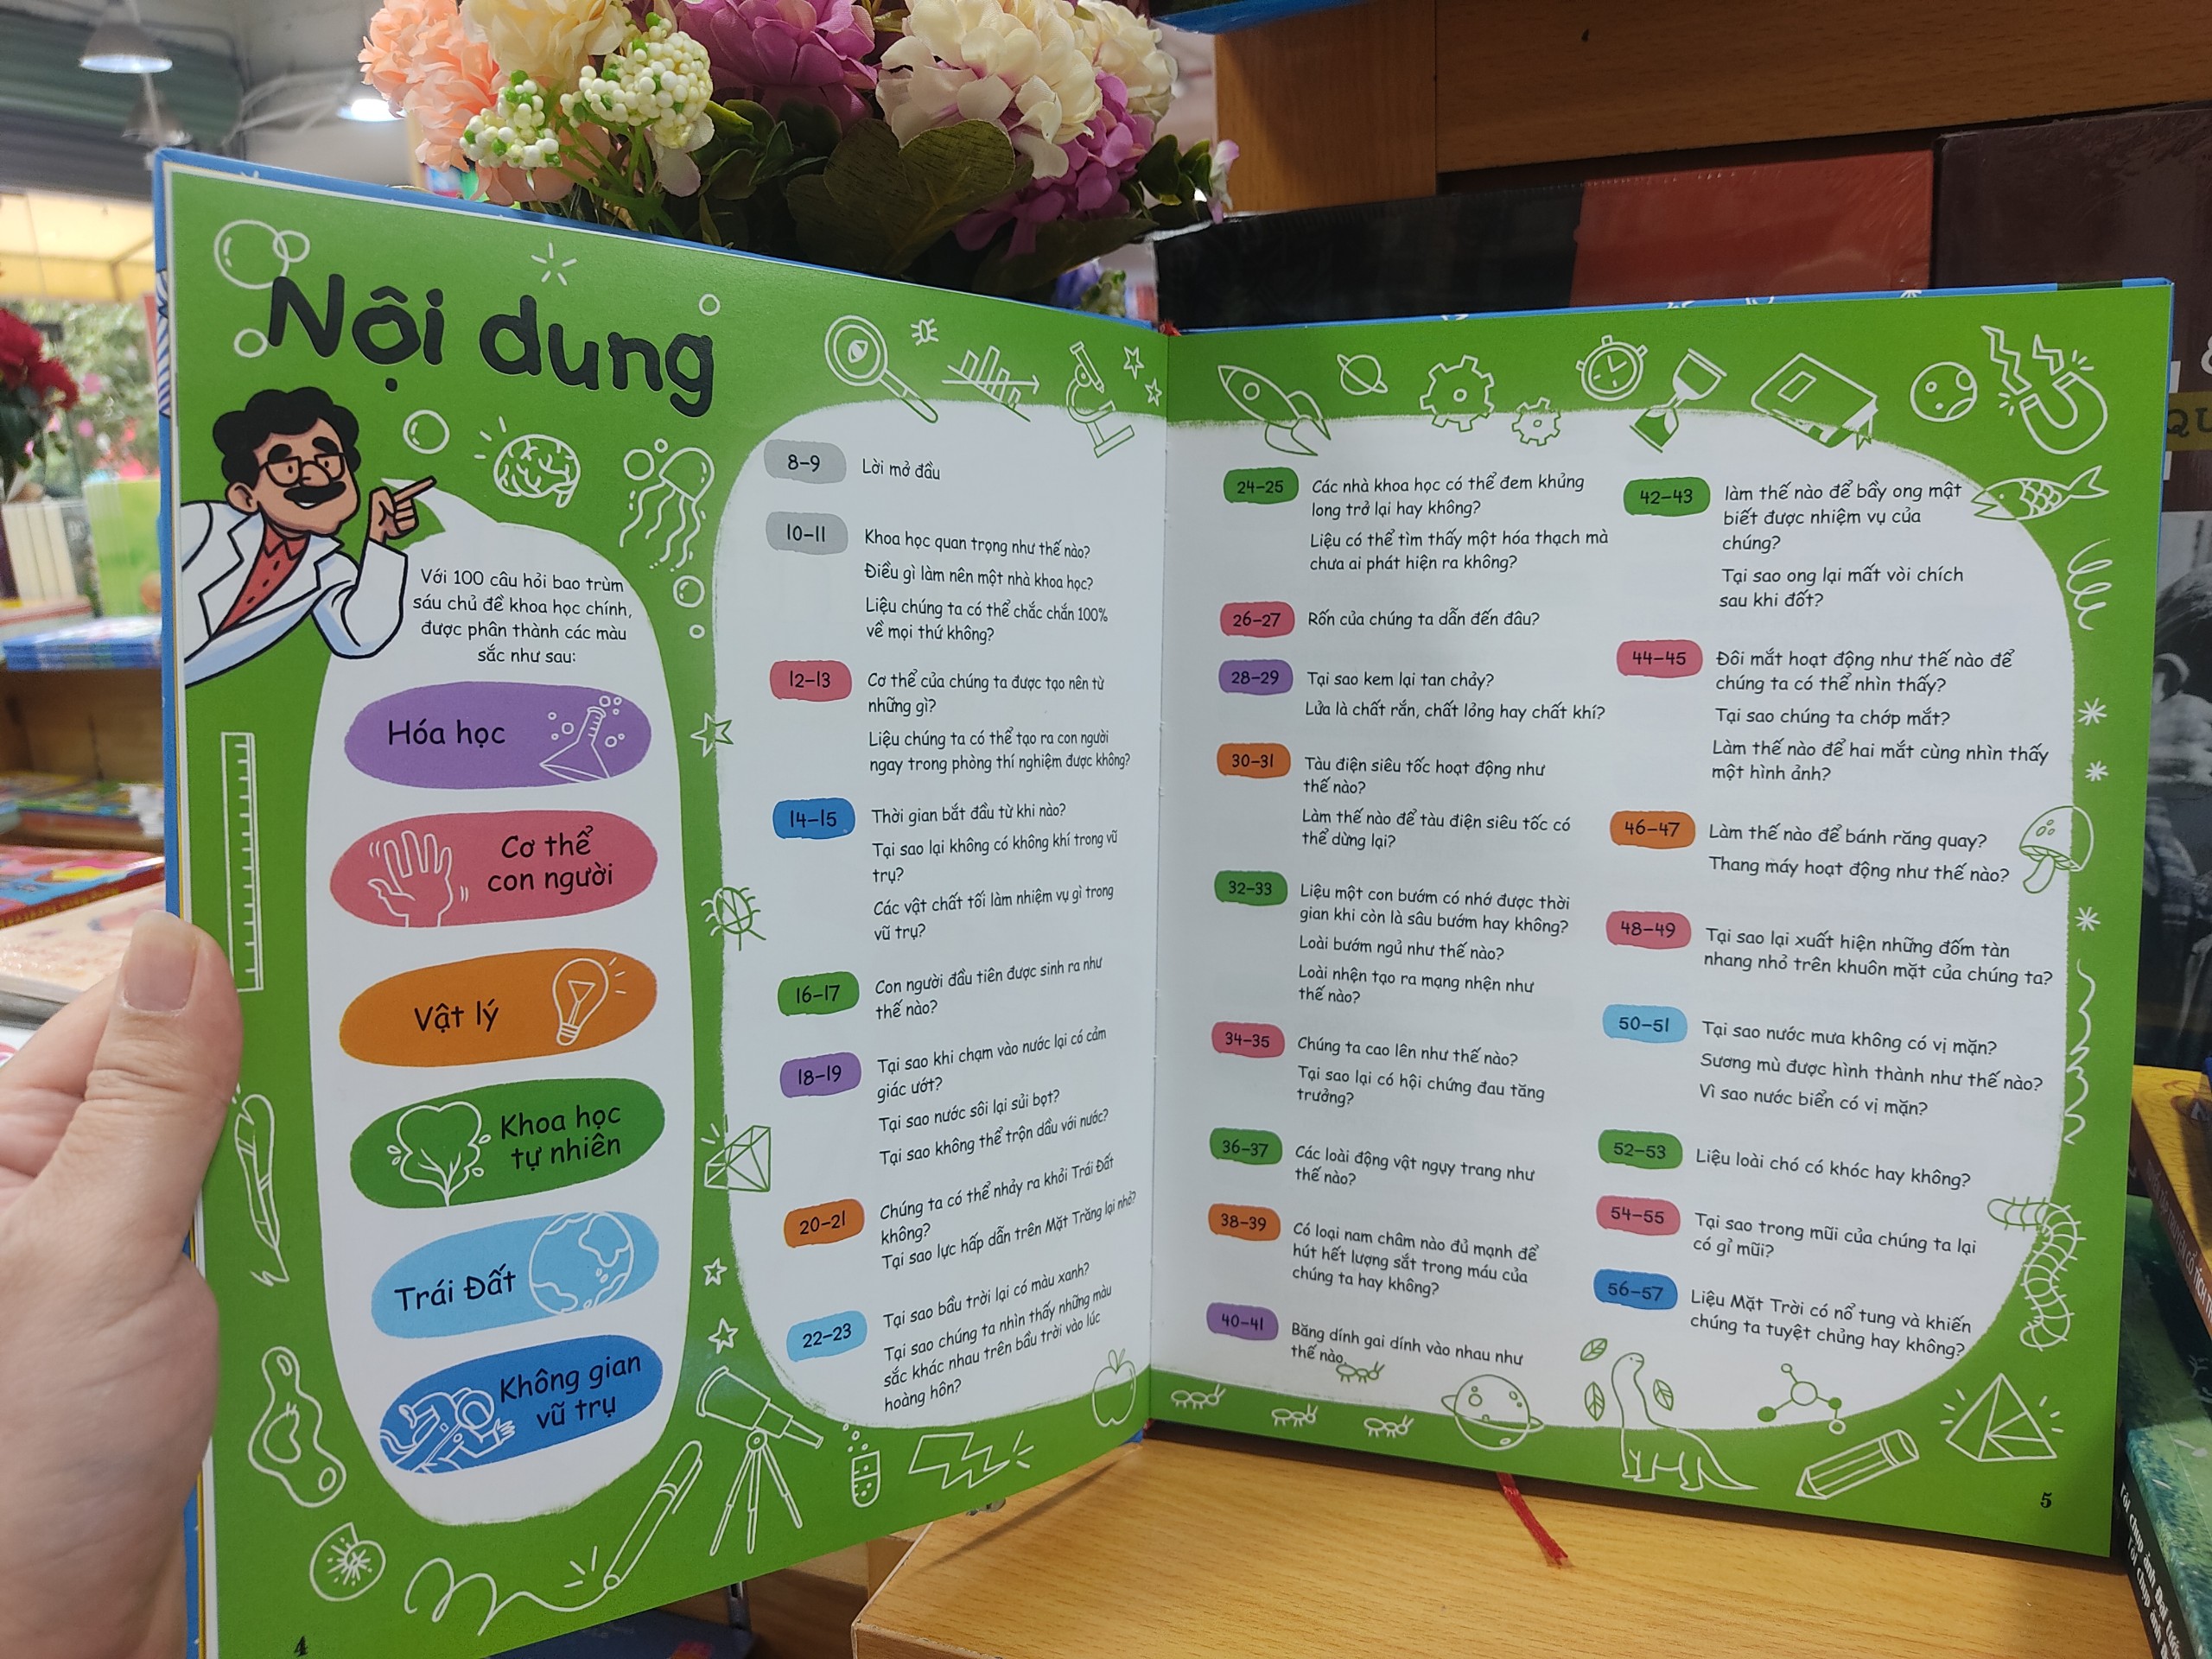 Nội dung
Với 100 câu hỏi bao trùm
sáu chủ đề khoa học chính,
được phân thành các màu
sắc như sau:
Hóa học
Cơ thể
con người
Vật lý
Khoa học
tự nhiên
Trái Đất
Không gian
vũ trụ
4
8–9
Lời mở đầu
10–11
Khoa học quan trọng như thế nào?
Điều gì làm nên một nhà khoa học?
Liệu chúng ta có thể chắc chắn 100%
về mọi thứ không?
12–13
Cơ thể của chúng ta được tạo nên từ
những gì?
Liệu chúng ta có thể tạo ra con người
ngay trong phòng thí nghiệm được không?
14–15
Thời gian bắt đầu từ khi nào?
Tại sao lại không có không khí trong vũ
trụ?
Các vật chất tối làm nhiệm vụ gì trong
vũ trụ?
16–17
Con người đầu tiên được sinh ra như
thế nào?
18–19
Tại sao khi chạm vào nước lại có cảm
giác ướt?
Tại sao nước sôi lại sủi bọt?
Tại sao không thể trộn dầu với nước?
20–21
Chúng ta có thể nhảy ra khỏi Trái Đất
không?
Tại sao lực hấp dẫn trên Mặt Trăng lại nhỏ?
22–23
Tại sao bầu trời lại có màu xanh?
Tại sao chúng ta nhìn thấy những màu
sắc khác nhau trên bầu trời vào lúc
hoàng hôn?
24–25
Các nhà khoa học có thể đem khủng
long trở lại hay không?
Liệu có thể tìm thấy một hóa thạch mà
chưa ai phát hiện ra không?
26–27
Rốn của chúng ta dẫn đến đâu?
28–29
Tại sao kem lại tan chảy?
Lửa là chất rắn, chất lỏng hay chất khí?
30–31
Tàu điện siêu tốc hoạt động như
thế nào?
Làm thế nào để tàu điện siêu tốc có
thể dừng lại?
32–33
Liệu một con bướm có nhớ được thời
gian khi còn là sâu bướm hay không?
Loài bướm ngủ như thế nào?
Loài nhện tạo ra mạng nhện như
thế nào?
34–35
Chúng ta cao lên như thế nào?
Tại sao lại có hội chứng đau tăng
trưởng?
36–37
Các loài động vật ngụy trang như
thế nào?
38–39
Có loại nam châm nào đủ mạnh để
hút hết lượng sắt trong máu của
chúng ta hay không?
40–41
Băng dính gai dính vào nhau như
thế nào
42–43
làm thế nào để bầy ong mật
biết được nhiệm vụ của
chúng?
Tại sao ong lại mất vòi chích
sau khi đốt?
44–45
Đôi mắt hoạt động như thế nào để
chúng ta có thể nhìn thấy?
Tại sao chúng ta chớp mắt?
Làm thế nào để hai mắt cùng nhìn thấy
một hình ảnh?
46–47
Làm thế nào để bánh răng quay?
Thang máy hoạt động như thế nào?
48–49
Tại sao lại xuất hiện những đốm tàn
nhang nhỏ trên khuôn mặt của chúng ta?
50–51
Tại sao nước mưa không có vị mặn?
Sương mù được hình thành như thế nào?
Vì sao nước biển có vị mặn?
52–53
Liệu loài chó có khóc hay không?
54–55
Tại sao trong mũi của chúng ta lại
có gỉ mũi?
56–57
Liệu Mặt Trời có nổ tung và khiến
chúng ta tuyệt chủng hay không?
5